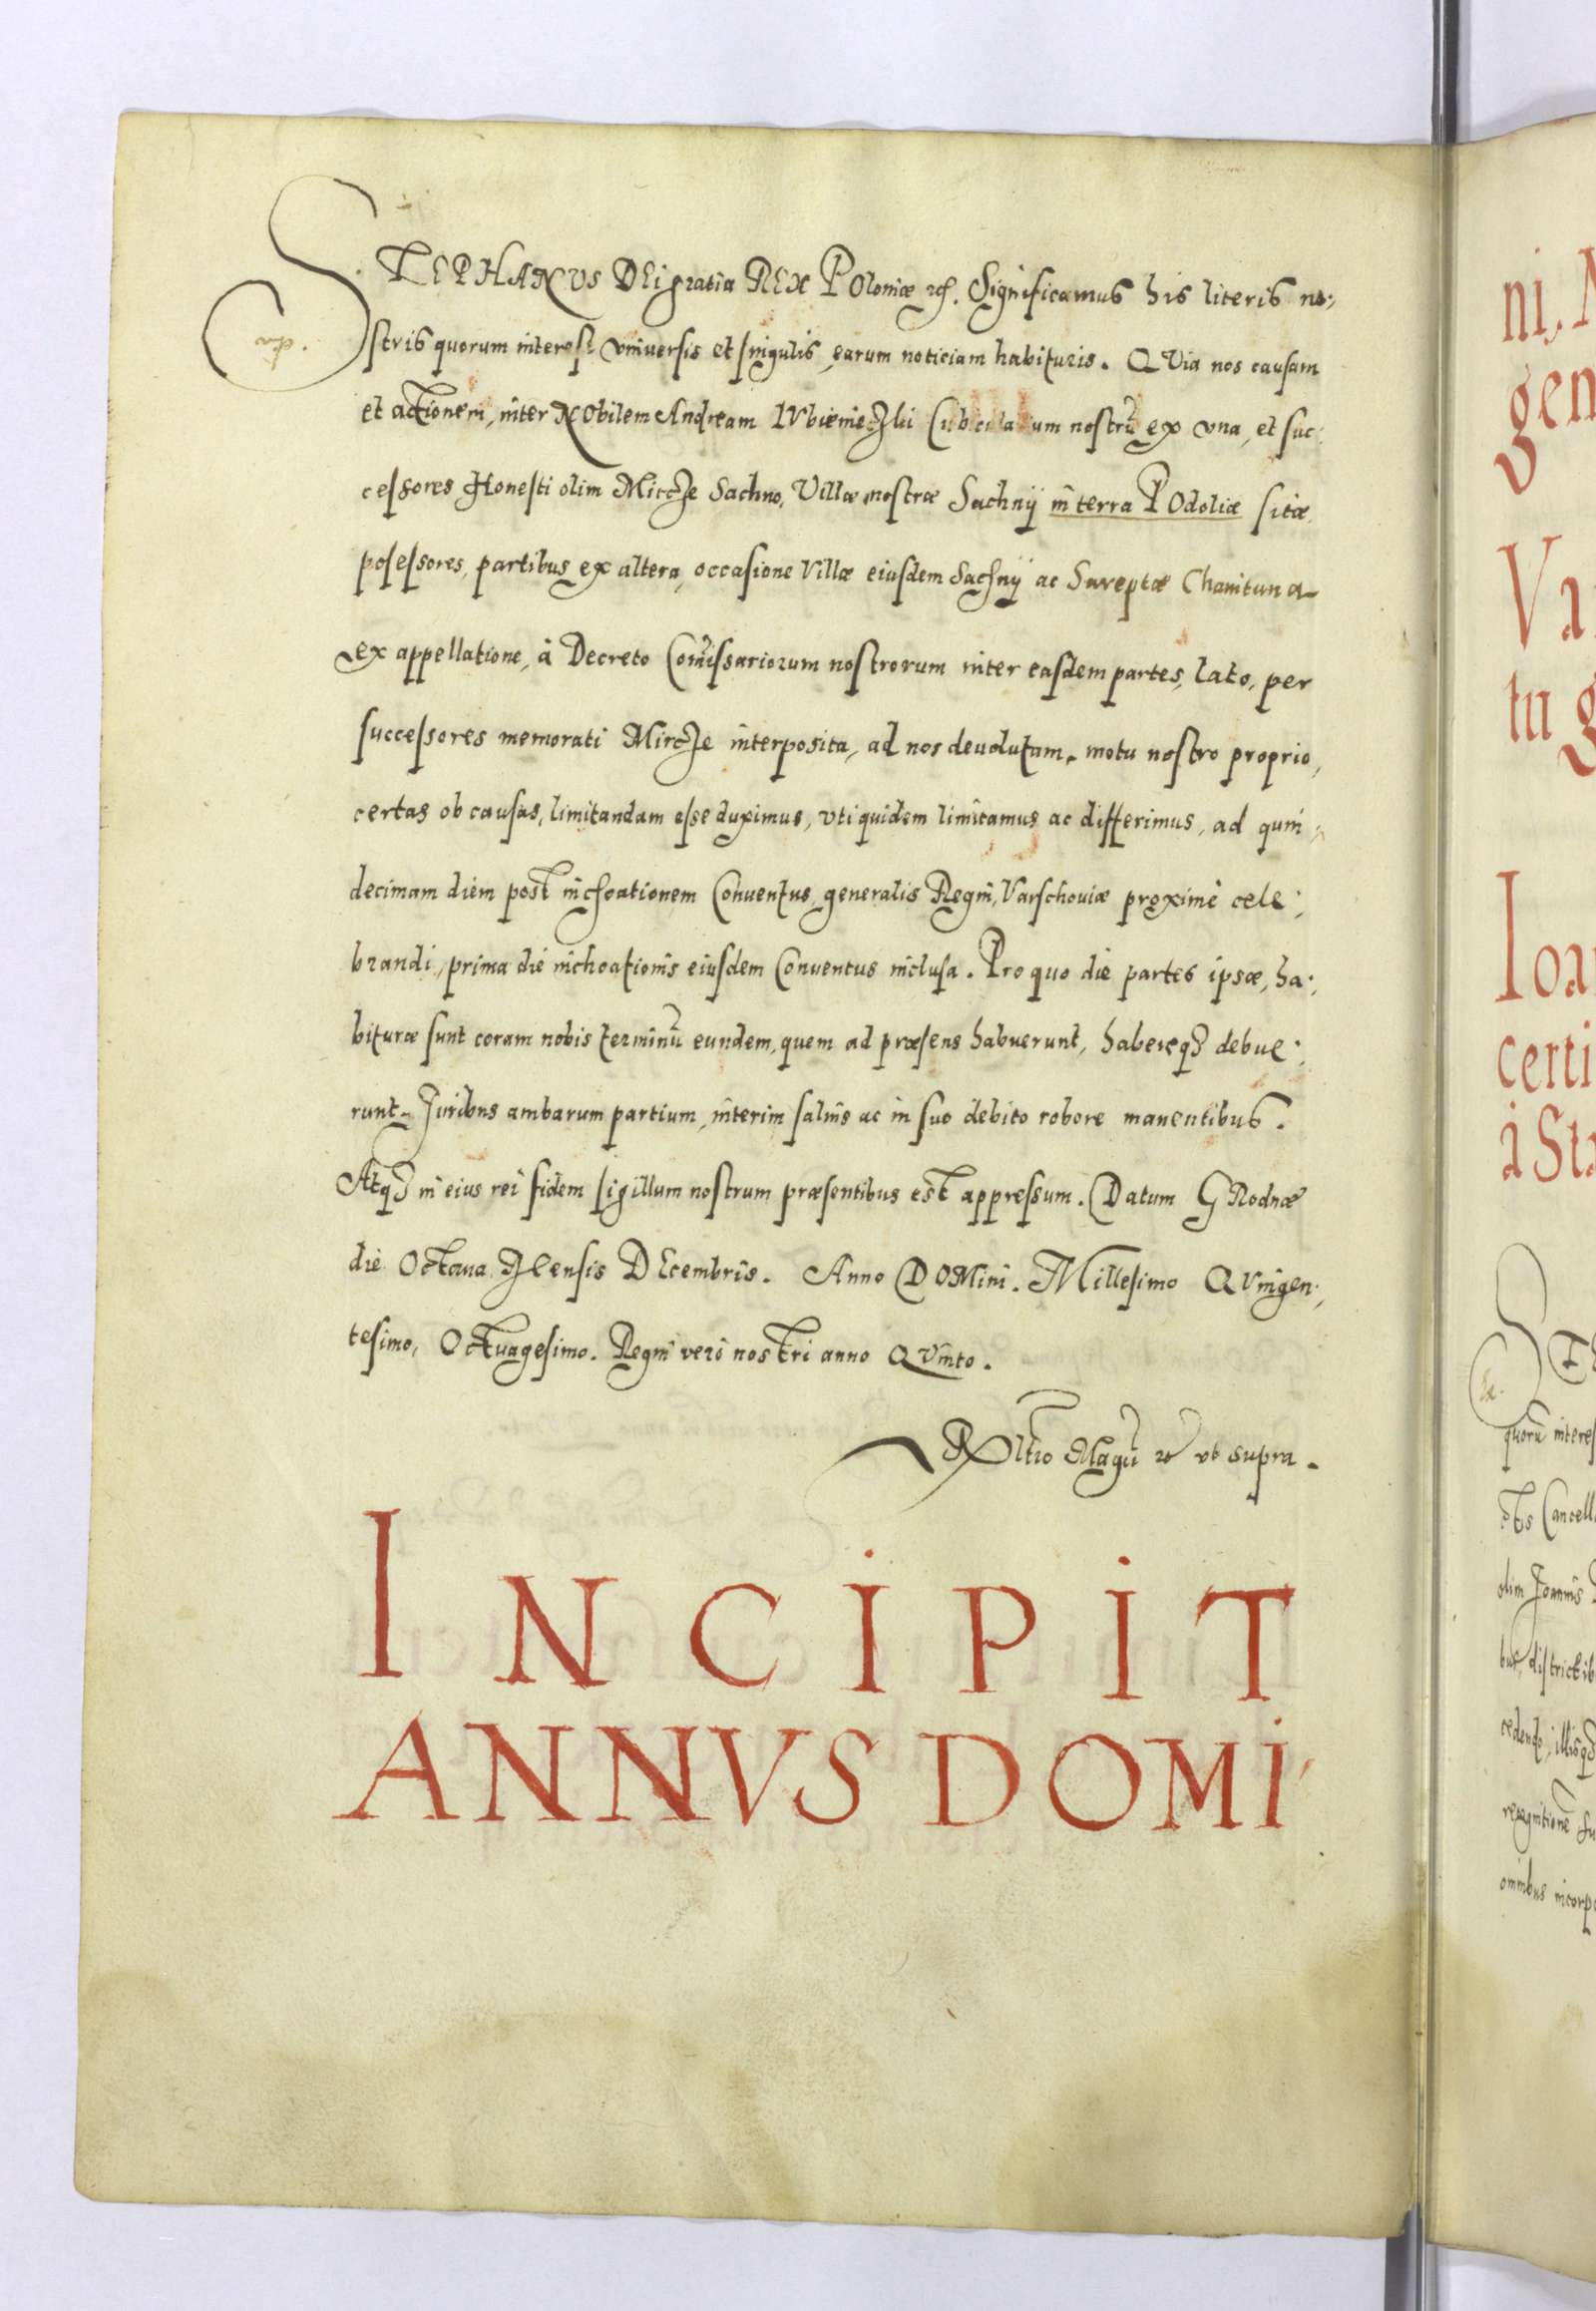 STEPHANVS DEi gratia REX POloniæ etc. Significamus his literis no:,
stris quorum interest vniuersis et singulis, earum noticiam habituris. QVia nos causam
et actionem, inter NObilem Andream LVbienieczki Cubicularium nostrũ ex vna, et suc:
cessores Honesti olim Mircze Sachno, Villæ nostræ Sachnÿ in terra POdoliæ sitæ
possessores, partibus ex altera, occasione Villæ eiusdem Sachnÿ ac Sareptæ
ex appellatione, à Decreto Com̃issariorum nostrorum inter easdem partes, lato, per
successores memorati Mircze interposita, ad nos deuolutam, motu nostro proprio,
certas ob causas, limitandam esse duximus, vti quidem limitamus ac differimus, ad quin:,
decimam diem post inchoationem Conuentus generalis Regni, Varschouiæ proximè cele:,
brandi, prima die inchoationis eiusdem Conuentus inclusa. Pro quo die partes ipsæ, ha:,
bituræ sunt coram nobis terminũ eundem, quem ad præsens habuerunt, habereq3 debue:,
runt. Juribus ambarum partium, interim saluis ac in suo debito robore manentibus.
Atq3 in eius rei fidem sigillum nostrum præsentibus est appressum. Datum GRodnæ
die Octaua Mensis DEcembris. Anno DOMini. Millesimo QVingen:,
tesimo, Octuagesimo. Regni verò nostri anno QVinto.
Rltio Magci etc vt supra.
INCIPIT
ANNVS DOMI
ni, 
gen
Va
tu g
Ioa
certi
à Sta
quorũ interes
Cancell
olim Joannis
districtib
cedendo, illisq3
recognitionẽ su
omnibus incorp